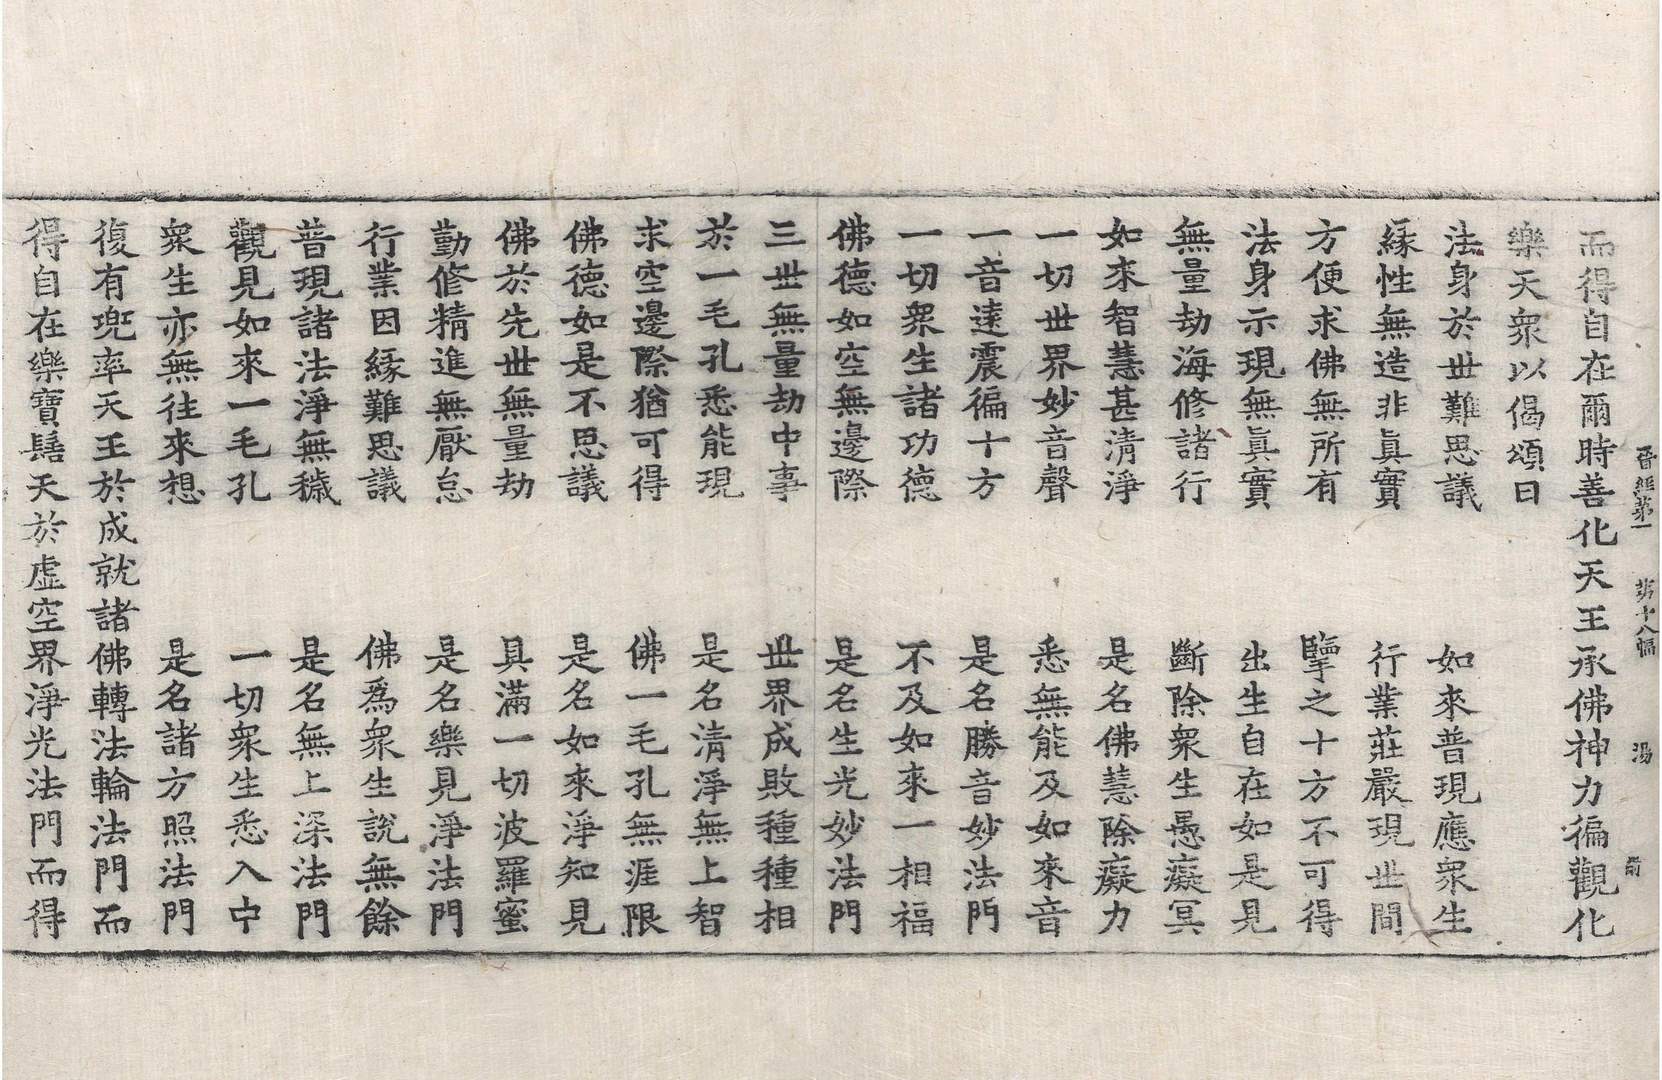 晉經第一　第十八幅　湯　前
而得自在爾時善化天王承佛神力徧觀化
樂天衆以偈頌曰
法身於世難思議　如來普現應衆生
緣性無造非眞實　行業莊嚴現世間
方便求佛無所有　擥之十方不可得
法身示現無眞實　出生自在如是見
無量劫海修諸行　斷除衆生愚癡冥
如來智慧甚清淨　是名佛慧除癡力
一切世界妙音聲　悉無能及如來音
一音遠震徧十方　是名勝音妙法門
一切衆生諸功德　不及如來一相福
佛德如空無邊際　是名生光妙法門
三世無量劫中事　世界成敗種種相
於一毛孔悉能現　是名清淨無上智
求空邊際猶可得　佛一毛孔無涯限
佛德如是不思議　是名如來淨知見
佛於先世無量劫　具滿一切波羅蜜
勤修精進無厭怠　是名樂見淨法門
行業因緣難思議　佛爲衆生說無餘
普現諸法淨無穢　是名無上深法門
觀見如來一毛孔　一切衆生悉入中
衆生亦無往來想　是名諸方照法門
復有兜率天王於成就諸佛轉法輪法門而
得自在樂寶髻天於虛空界淨光法門而得